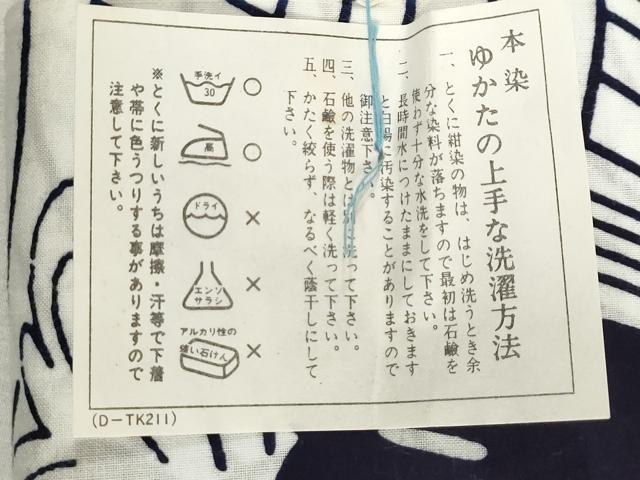 本染
ゆかたの上手な洗濯方法
一、とくに紺染の物は、はじめ洗うとき余
分な染料が落ちますので最初は石鹸を
使わず十分な水洗をして下さい。
二、長時間水につけたままにしておきます
と白場を汚染することがありますので
御注意下さい。
三、他の洗濯物とは別に洗って下さい。
四、石鹸を使う際は軽く洗って下さい。
五、かたく絞らず、なるべく蔭干しにして
下さい。
手洗イ
30
○
高
○
ドライ
×
エンソ
サラシ
×
アルカリ性の
強い石けん
×
※とくに新しいうちは摩擦・汗等で下着
や帯に色うつりする事がありますので
注意して下さい。
(D-TK211)